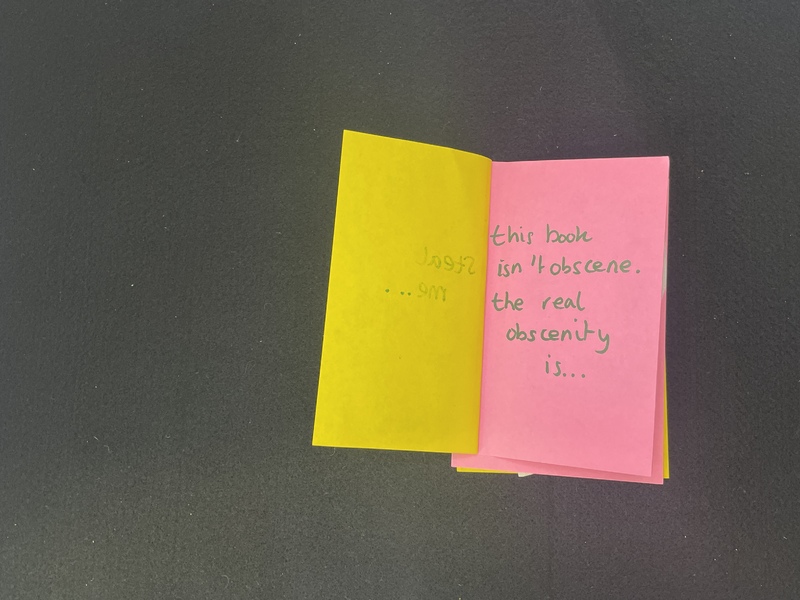 steal
me...
this book
isn't obscene.
the real
obscenity
is...